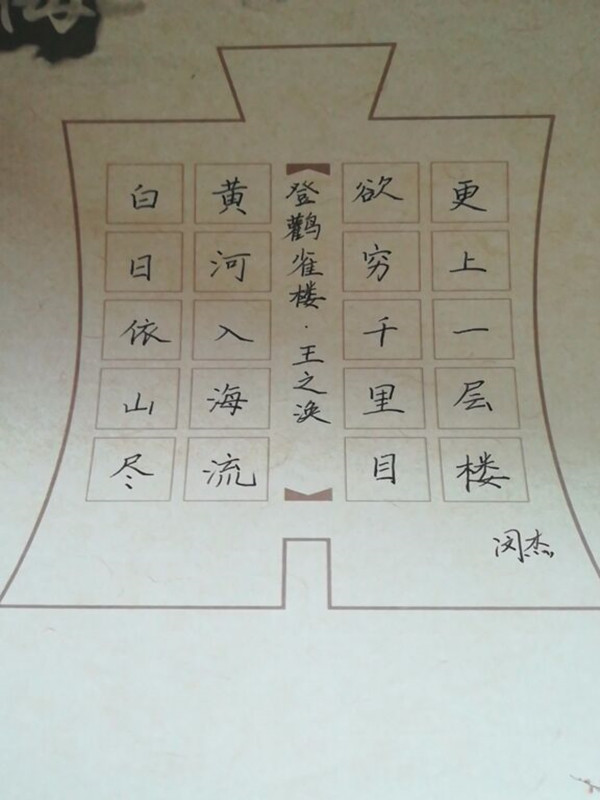 白日依山尽
黄河入海流
登鹳雀楼·王之涣
欲穷千里目
更上一层楼
闵杰